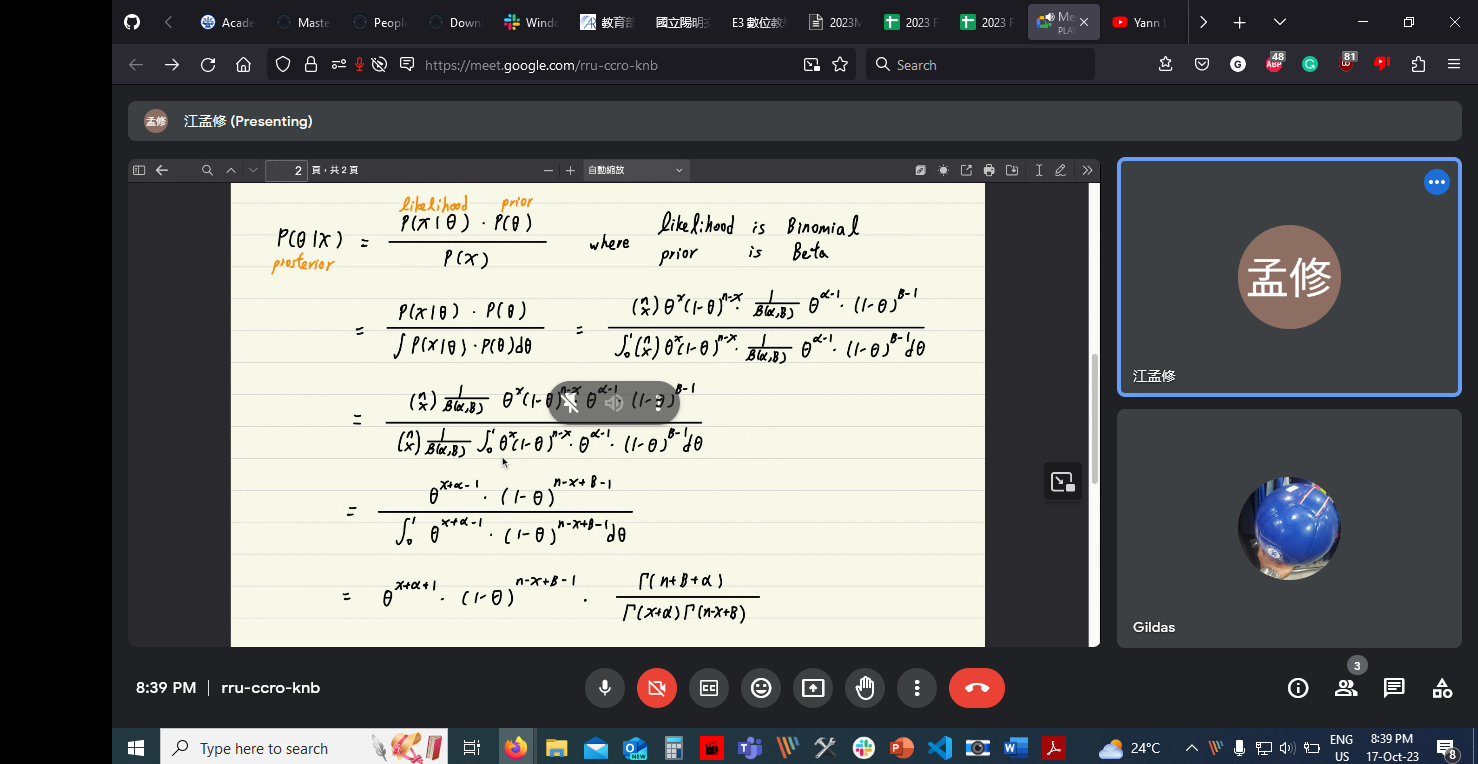 Acade
Maste
Peopl
Down
Windo
教育部
國立陽明交
E3 數位教
2023M
2023 F
2023 F
Me
PLAY
Yann L
https://meet.google.com/rru-ccro-knb
Search
48
81
孟修 江孟修 (Presenting)
2 頁,共 2 頁
自動縮放
likelihood prior
P(θ|x) = P(x|θ) · P(θ) / P(x) where likelihood is Binomial
posterior
prior is Beta
= P(x|θ) · P(θ) / ∫ P(x|θ) · P(θ)dθ = (n x) θ^x (1-θ)^{n-x} · 1/B(α,β) θ^{α-1} · (1-θ)^{β-1} / ∫₀¹ (n x) θ^x (1-θ)^{n-x} · 1/B(α,β) θ^{α-1} · (1-θ)^{β-1} dθ
= (n x) 1/B(α,β) θ^x (1-θ)^{n-x} · θ^{α-1} · (1-θ)^{β-1} / (n x) 1/B(α,β) ∫₀¹ θ^x (1-θ)^{n-x} · θ^{α-1} · (1-θ)^{β-1} dθ
= θ^{x+α-1} · (1-θ)^{n-x+β-1} / ∫₀¹ θ^{x+α-1} · (1-θ)^{n-x+β-1} dθ
= θ^{x+α+1} · (1-θ)^{n-x+β-1} · Γ(n+β+α) / Γ(x+α) Γ(n-x+β)
孟修
江孟修
Gildas
8:39 PM | rru-ccro-knb
3
Type here to search
24°C
ENG
US
8:39 PM
17-Oct-23
8